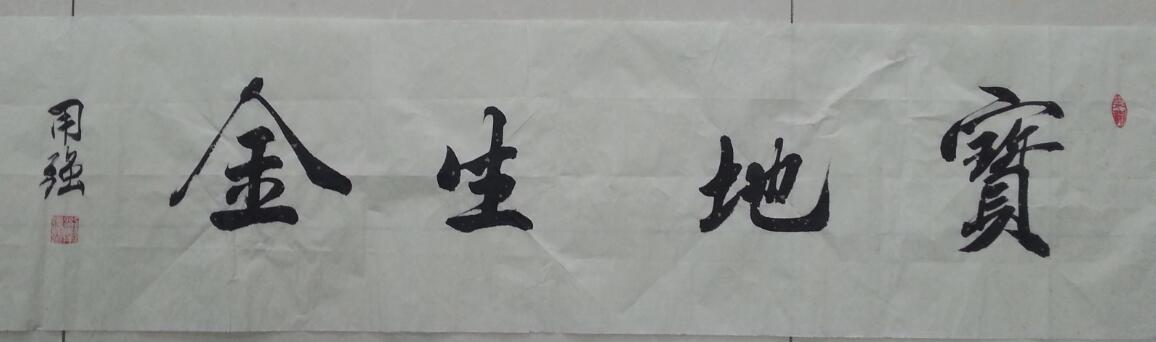 寶地生金
周强